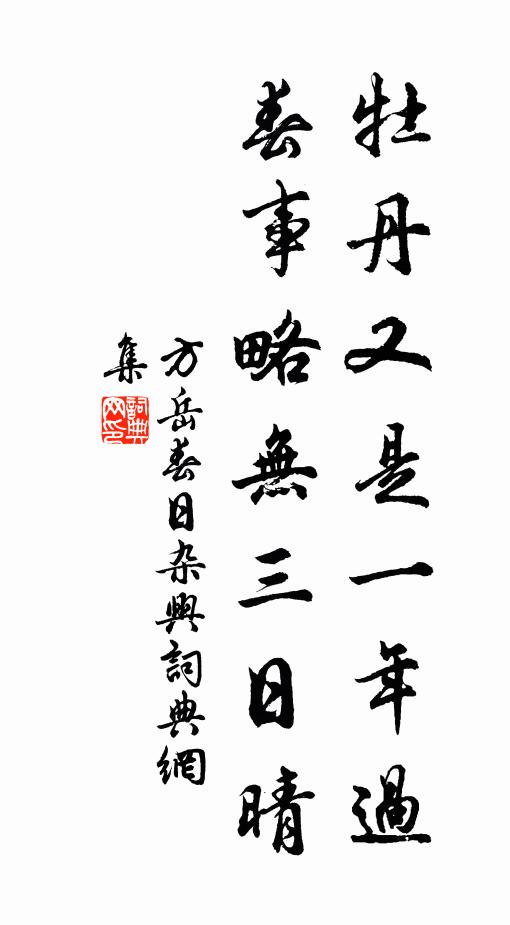 牡丹又是一年過
春事略無三日晴
方岳春日杂興詞典網
集
詞典网印